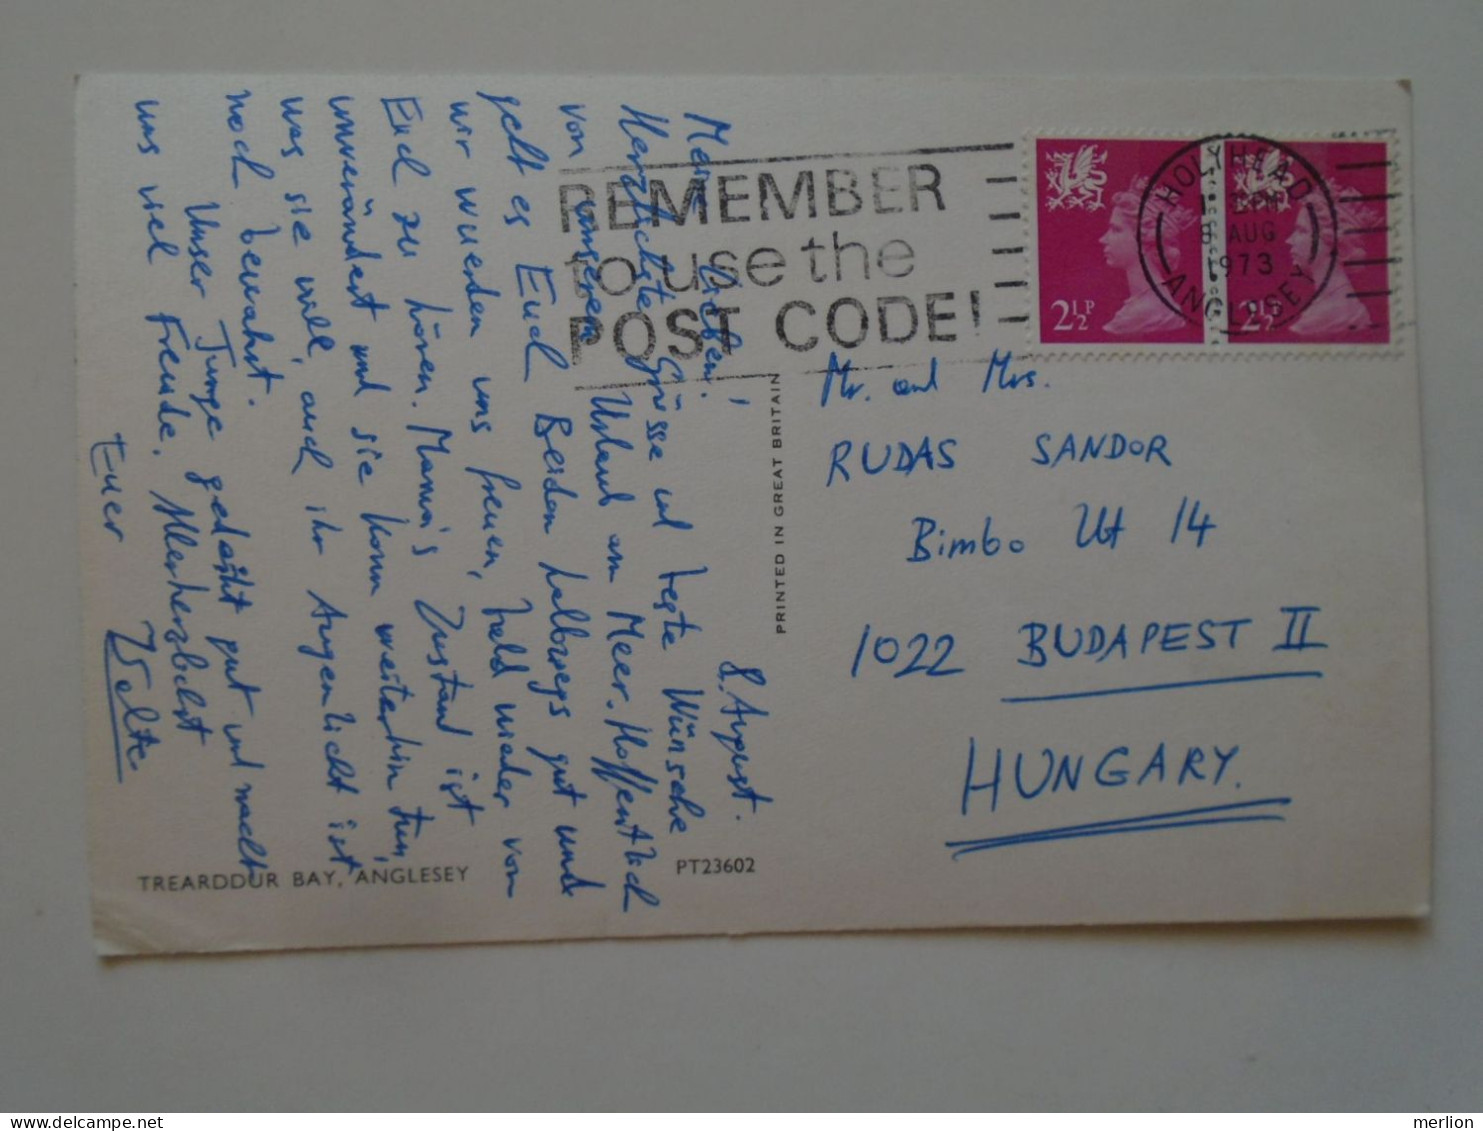 8. August.
Meine Lieben!
Herzlichste Grüsse und beste Wünsche
von unserem Urlaub am Meer. Hoffentlich
geht es Euch Beiden halbwegs gut und
wir wuerden uns freuen, bald wieder von
Euch zu hören. Mama's Zustand ist
unverändert und sie kann weiterhin tun,
was sie will, auch ihr Augenlicht ist
noch bewahrt.
Unser Junge gedeiht gut und macht
uns viel Freude. Allerherzlichst
Euer
TREARDDUR BAY, ANGLESEY
PT23602
PRINTED IN GREAT BRITAIN
REMEMBER
to use the
POST CODE!
HOLYHEAD
AUG
1973
ANGLESEY
2½P
2½P
Mr. and Mrs.
RUDAS SANDOR
Bimbo Ut 14
1022 BUDAPEST II
HUNGARY.
merlion